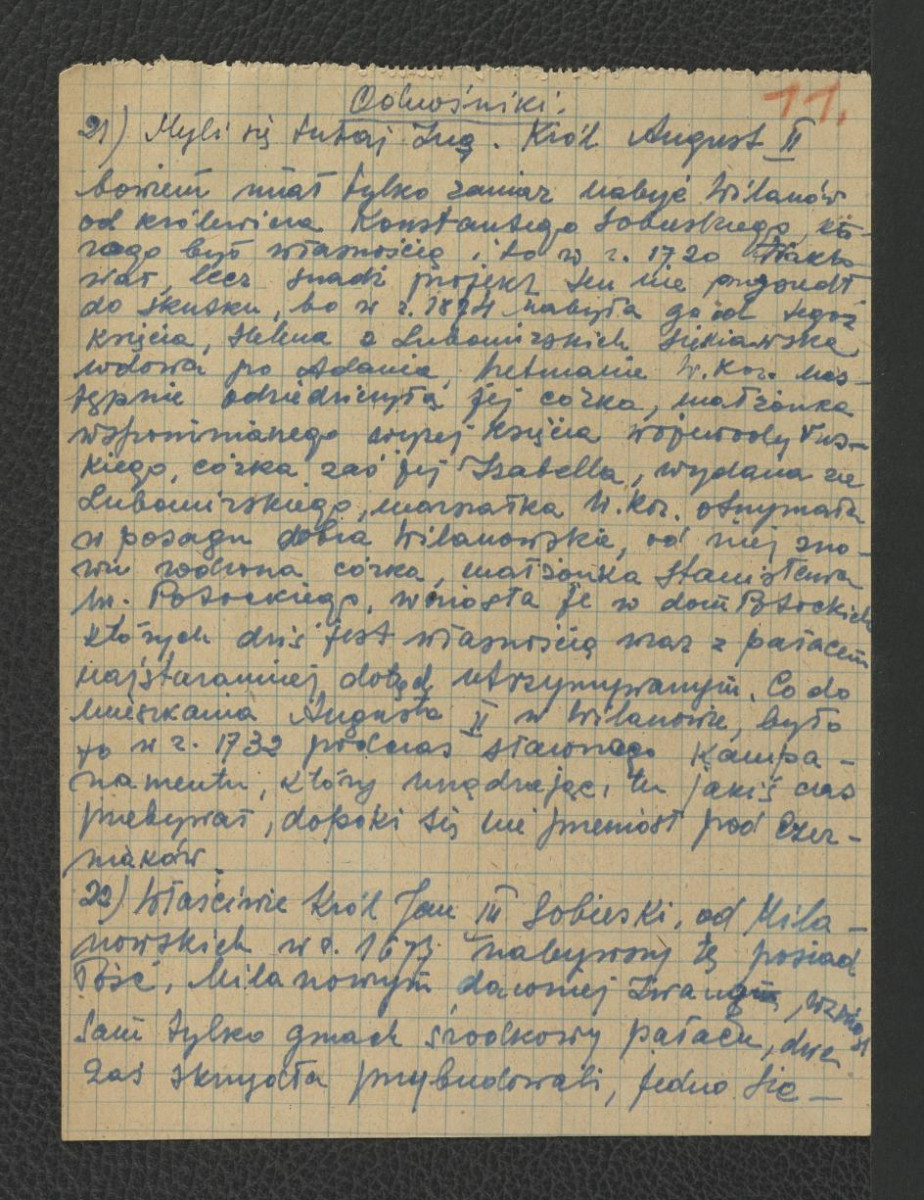 Odnośniki.
11.
21) Myli się tutaj Ing. Król August II
bowiem miał tylko zamiar nabyć Wilanów
od królewica Konstantego Sobieskiego, któ-
rego był własnością i to w r. 1720
wał, lecz snadź projekt ten nie przyszedł
do skutku, bo w r. 1824 nabyła go od tegoż
księcia, Helena z Lubomirskich Sieniawska,
wdowa po Adamie, hetmanie W. Kor. nas-
tępnie odziedziczyła jej córka, małżonka
wspomnianego wyżej księcia wojewody Rus-
kiego, córka zaś jej Izabella, wydana za
Lubomirskiego, marszałka W. Kor. otrzymała
w posagu dobra Wilanowskie, od niej zno-
wu rodzona córka, małżonka Stanisława
hr. Potockiego, wniosła je w dom Potockich
których dziś jest własnością wraz z pałacem
najstaranniej dotąd utrzymywanym. Co do
mieszkania Augusta II w Wilanowie, było
to w r. 1732 podczas sławnego Kampa-
namentu, który urządzając, tu jakiś czas
przebywał, dopóki się nie przeniósł pod Czer-
niaków.
22) Właściwie Król Jan III Sobieski, od Mila-
nowskich w r. 1677 nabywszy tę posiad
łość, Milanowym dawniej zwaną, wzniósł
sam tylko gmach środkowy pałacu, dwa
zaś skrzydła przybudowali, jedno Sie-